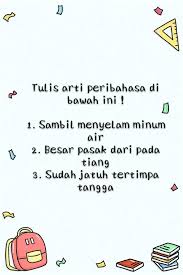 Tulis arti peribahasa di
bawah ini !
1. Sambil menyelam minum
air
2. Besar pasak dari pada
tiang
3. Sudah jatuh tertimpa
tangga